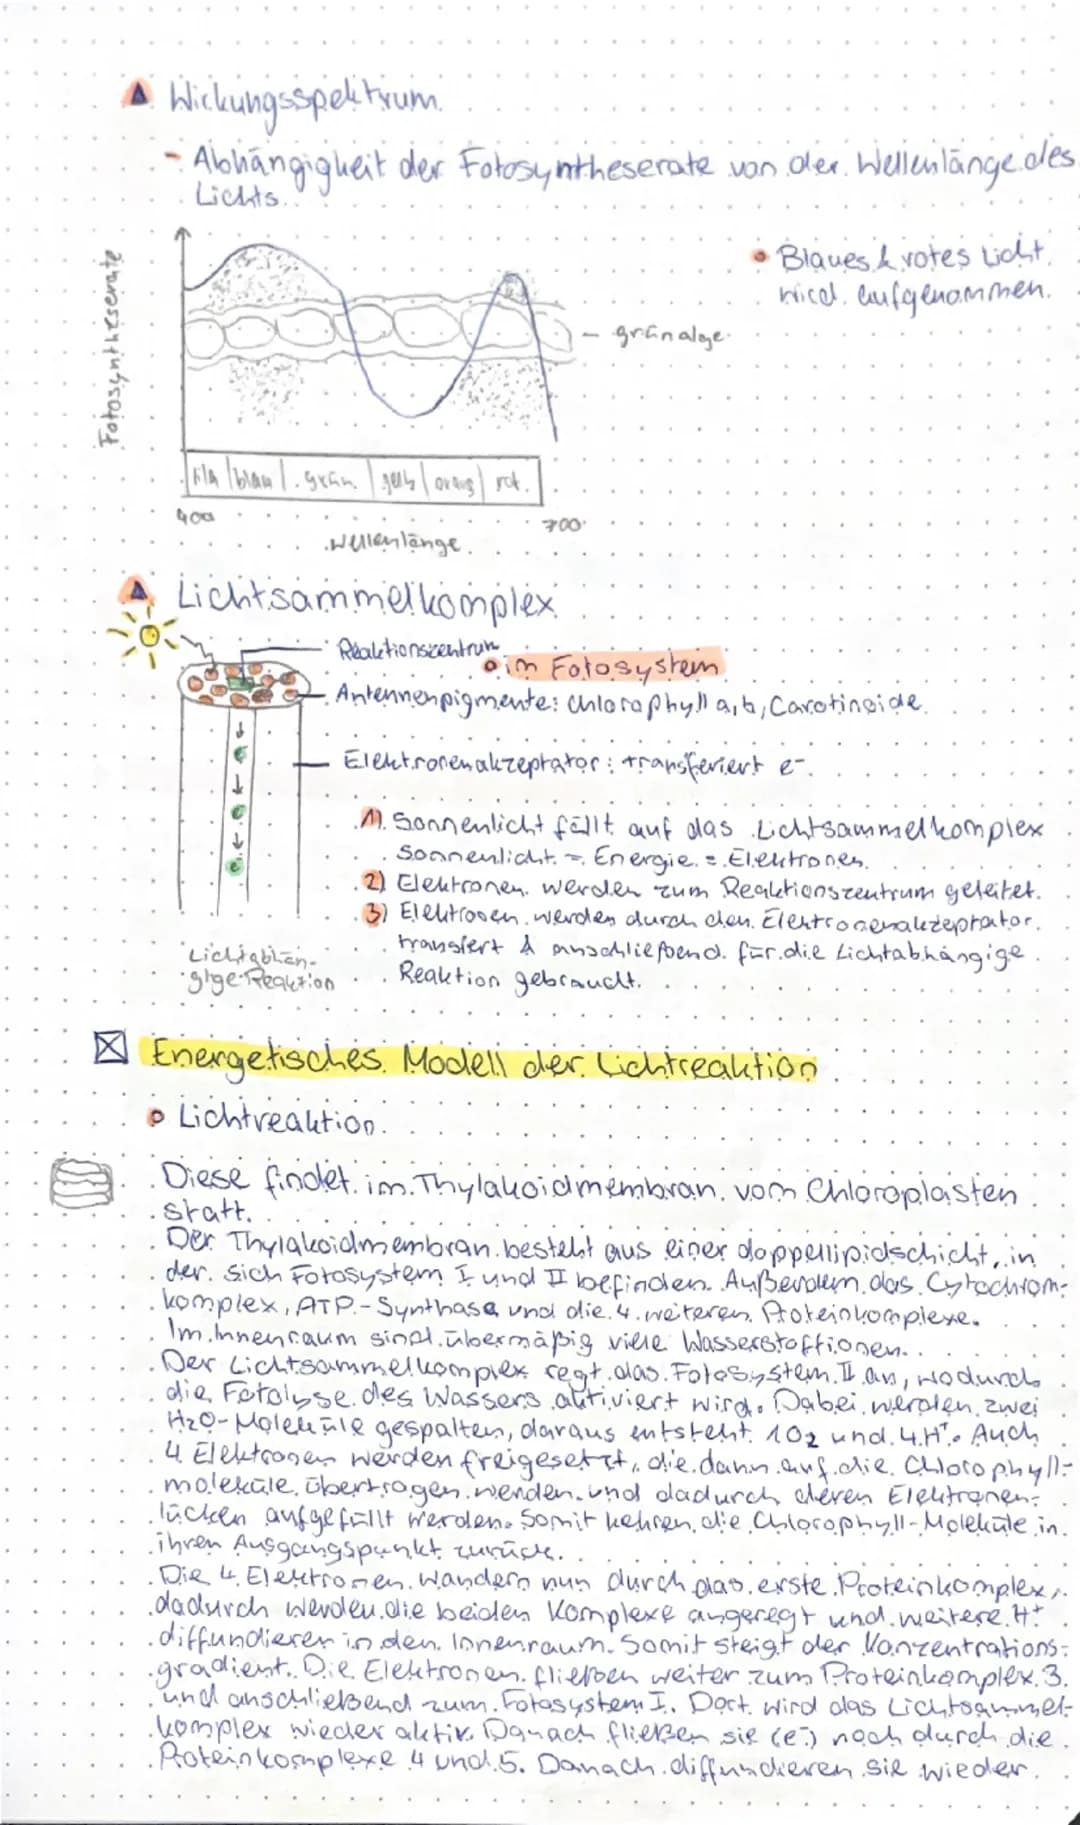 Wirkungsspektrum
- Abhängigkeit der Fotosyntheserate von der Wellenlänge des
Lichts.
Fotosyntheserate
• Blaues & rotes Licht
wird aufgenommen.
- grünalge
lila | blau | grün | gelb | orang | rot
400
700
Wellenlänge
Lichtsammelkomplex
Reaktionszentrum
• im Fotosystem
Antennenpigmente: Chlorophyll a, b, Carotinoide
Elektronenakzeptator: transferiert e-
1) Sonnenlicht fällt auf das Lichtsammelkomplex
Sonnenlicht = Energie = Elektronen
2) Elektronen werden zum Reaktionszentrum geleitet.
3) Elektronen werden durch den Elektronenakzeptator
transfert & anschließend für die Lichtabhängige
Reaktion gebraucht.
e
Lichtabhän-
gige Reaktion
Energetisches Modell der Lichtreaktion
• Lichtreaktion
Diese findet im Thylakoidmembran vom Chloroplasten
statt.
Der Thylakoidmembran besteht aus einer doppellipidschicht, in
der sich Fotosystem I und II befinden. Außerdem das Cytochrom-
komplex, ATP-Synthase und die 4 weiteren Proteinkomplexe.
Im Innenraum sind übermäßig viele Wasserstoffionen.
Der Lichtsammelkomplex regt das Fotosystem II an, wodurch
die Fotolyse des Wassers aktiviert wird. Dabei werden zwei
H2O-Moleküle gespalten, daraus entsteht 1O2 und 4H+. Auch
4 Elektronen werden freigesetzt, die dann auf die Chlorophyll-
moleküle übertragen werden und dadurch deren Elektronen-
lücken aufgefüllt werden. Somit kehren die Chlorophyll-Moleküle in
ihren Ausgangspunkt zurück.
Die 4 Elektronen wandern nun durch das erste Proteinkomplex,
dadurch werden die beiden Komplexe angeregt und weitere H+
diffundieren in den Innenraum. Somit steigt der Konzentrations-
gradient. Die Elektronen fließen weiter zum Proteinkomplex 3
und anschließend zum Fotosystem I. Dort wird das Lichtsammel-
komplex wieder aktiv. Danach fließen sie (e-) noch durch die
Proteinkomplexe 4 und 5. Danach diffundieren sie wieder